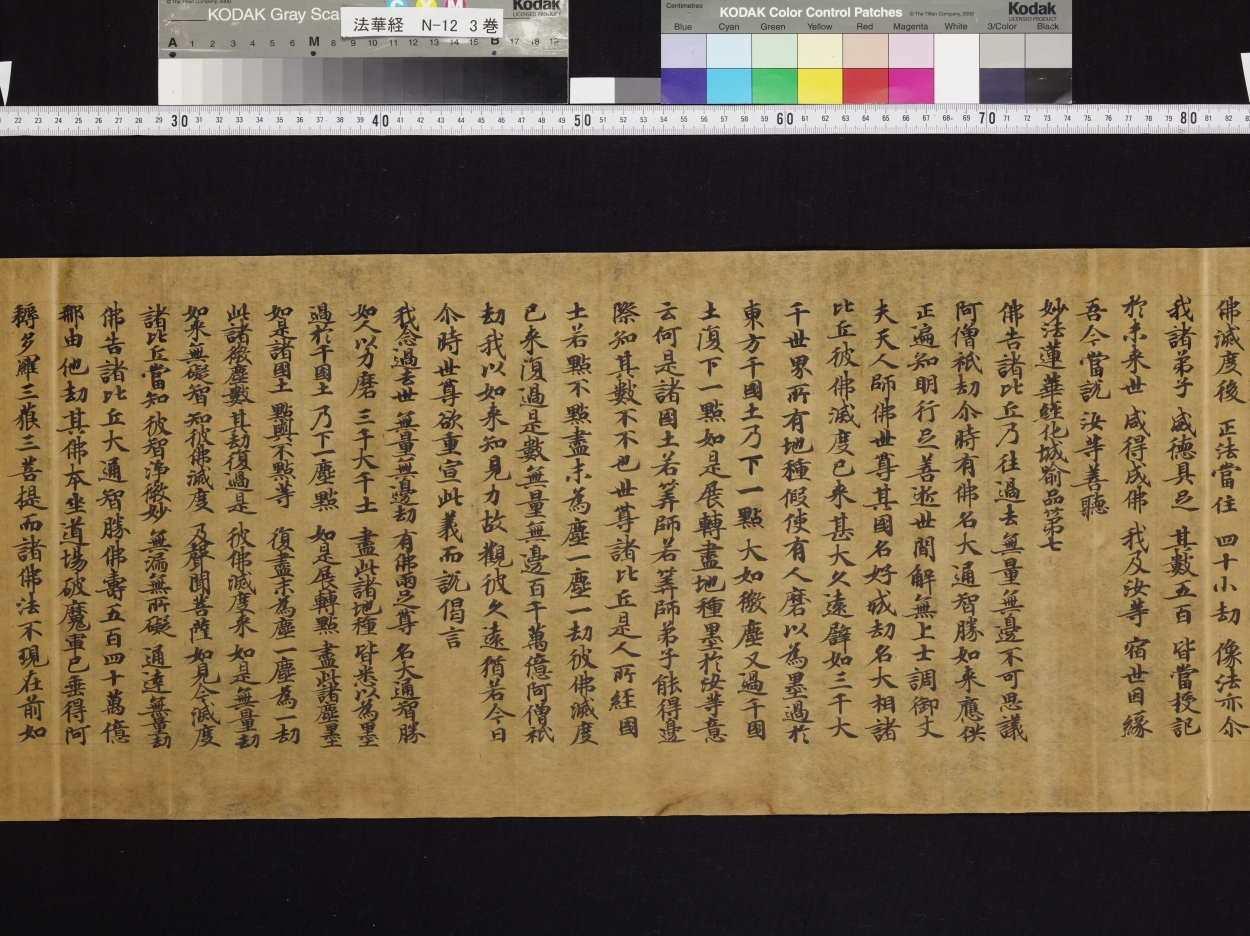 KODAK Gray Sca
法華経 N-12 3巻
Kodak
LICENSED PRODUCT
© The Tiffen Company, 2000
A 1 2 3 4 5 6 M 8 9 10 11 12 13 14 15 B 17 18 19
Centimetres
KODAK Color Control Patches
© The Tiffen Company, 2000
Kodak
LICENSED PRODUCT
Blue Cyan Green Yellow Red Magenta White 3/Color Black
22 23 24 25 26 27 28 29 30 31 32 33 34 35 36 37 38 39 40 41 42 43 44 45 46 47 48 49 50 51 52 53 54 55 56 57 58 59 60 61 62 63 64 65 66 67 68 69 70 71 72 73 74 75 76 77 78 79 80 81 82
佛滅度後 正法當住 四十小劫 像法亦尒
我諸弟子 威德具足 其數五百 皆當授記
於未来世 咸得成佛 我及汝等 宿世因緣
吾今當説 汝等善聽
妙法蓮華經化城喻品第七
佛告諸比丘乃往過去無量無邊不可思議
阿僧祇劫尒時有佛名大通智勝如来應供
正遍知明行足善逝世間解無上士調御丈
夫天人師佛世尊其國名好城劫名大相諸
比丘彼佛滅度已来甚大久遠譬如三千大
千世界所有地種假使有人磨以為墨過於
東方千國土乃下一點大如微塵又過千國
土復下一點如是展轉盡地種墨於汝等意
云何是諸國土若筭師若筭師弟子能得邊
際知其數不不也世尊諸比丘是人所經國
土若點不點盡末為塵一塵一劫彼佛滅度
已来復過是數無量無邊百千萬億阿僧祇
劫我以如来知見力故觀彼久遠猶若今日
尒時世尊欲重宣此義而説偈言
我念過去世 無量無邊劫 有佛兩足尊 名大通智勝
如人以力磨 三千大千土 盡此諸地種 皆悉以為墨
過於千國土 乃下一塵點 如是展轉點 盡此諸塵墨
如是諸國土 點與不點等 復盡末為塵 一塵為一劫
此諸微塵數 其劫復過是 彼佛滅度来 如是無量劫
如来無礙智 知彼佛滅度 及聲聞菩薩 如見今滅度
諸比丘當知 彼智淨微妙 無漏無所礙 通達無量劫
佛告諸比丘大通智勝佛壽五百四十萬億
那由他劫其佛本坐道場破魔軍已垂得阿
耨多羅三藐三菩提而諸佛法不現在前如